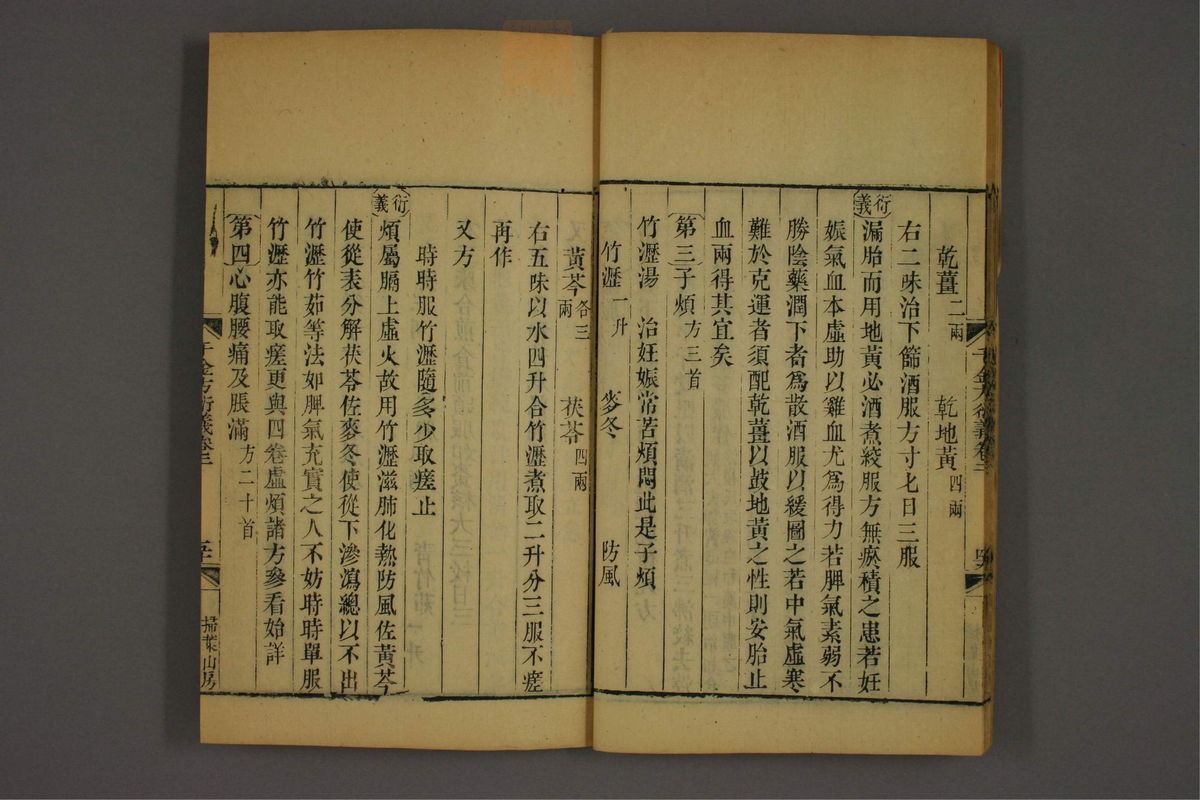 乾薑二兩 乾地黃四兩
右二味治下篩酒服方寸匕日三服
衍義
漏胎而用地黃必酒煮絞服方無瘀積之患若妊
娠氣血本虛助以雞血尤爲得力若脾氣素弱不
勝陰藥潤下者爲散酒服以緩圖之若中氣虛寒
難於克運者須配乾薑以鼓地黃之性則安胎止
血兩得其宜矣
第三子煩方三首
竹瀝湯 治妊娠常苦煩悶此是子煩
竹瀝一升 麥冬 防風
黃芩各三兩 茯苓四兩
右五味以水四升合竹瀝煮取二升分三服不瘥
再作
又方
時時服竹瀝隨多少取瘥止
衍義
煩屬膈上虛火故用竹瀝滋肺化熱防風佐黃芩
使從表分解茯苓佐麥冬使從下滲瀉總以不出
竹瀝竹茹等法如脾氣充實之人不妨時時單服
竹瀝亦能取瘥更與四卷虛煩諸方參看始詳
第四心腹腰痛及脹滿方二十首
千金方衍義卷二
掃葉山房